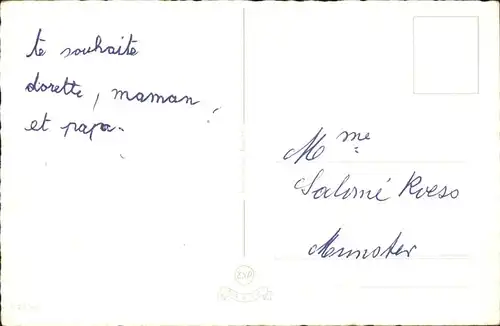 te souhaite
dorette, maman,
et papa.
Mme
Salomé Roeso
Munster